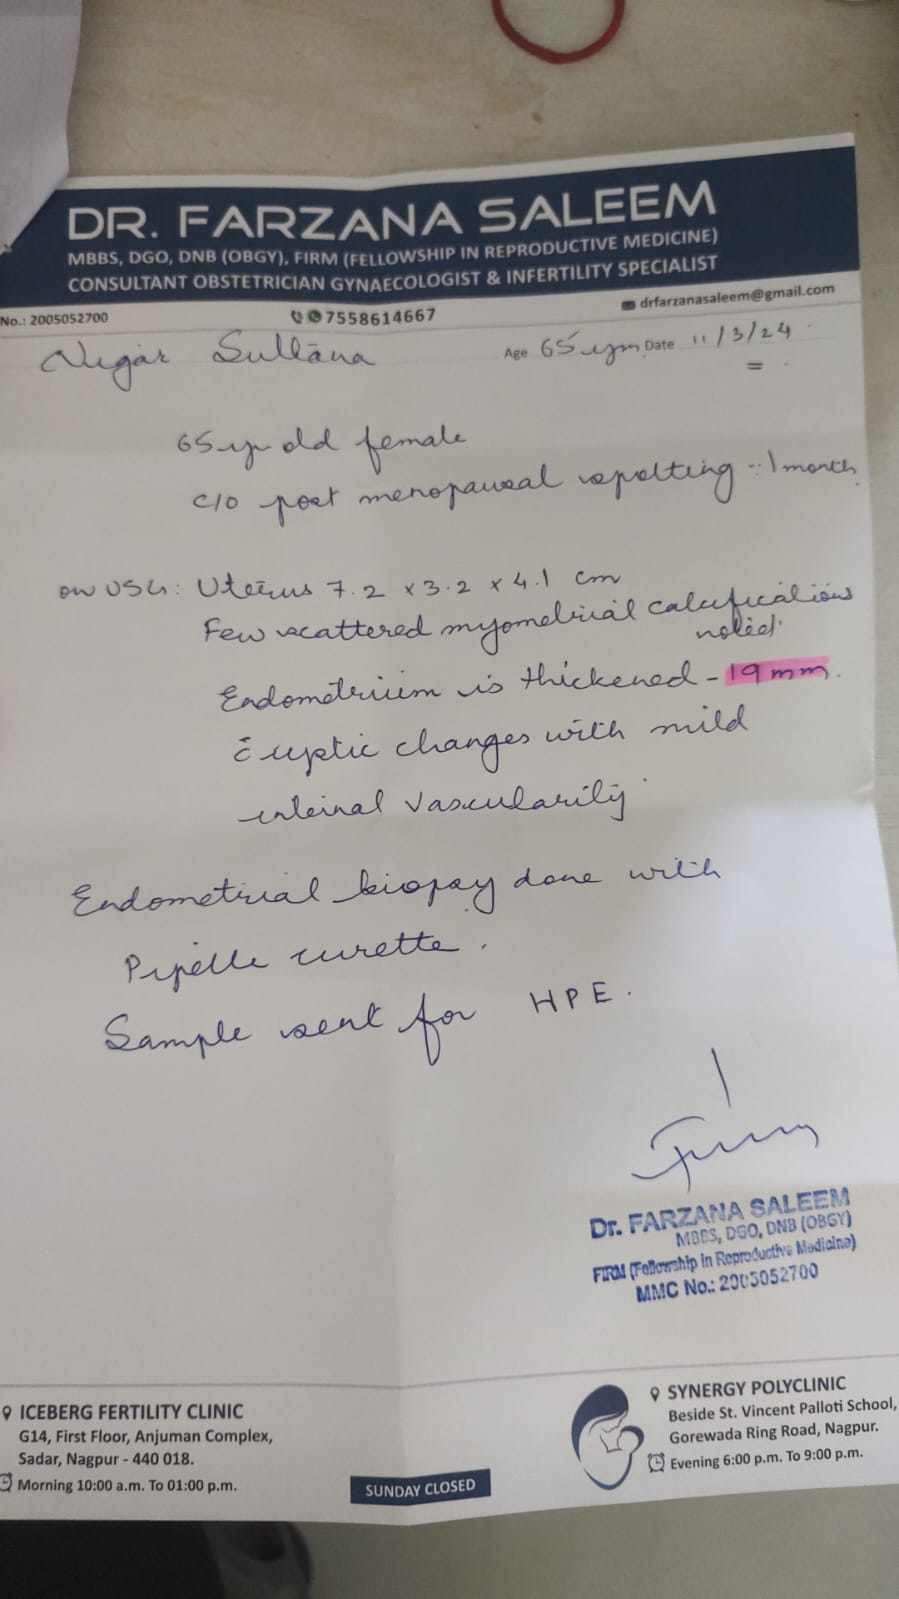 DR. FARZANA SALEEM
MBBS, DGO, DNB (OBGY), FIRM (FELLOWSHIP IN REPRODUCTIVE MEDICINE)
CONSULTANT OBSTETRICIAN GYNAECOLOGIST & INFERTILITY SPECIALIST
No.: 2005052700 7558614667 drfarzanasaleem@gmail.com
Nigar Sultana Age 65 Date 11/3/24
65 old female
c/o post menopausal spotting 1 month
on USG: Uterus 7.2 x 3.2 x 4.1 cm
Few scattered myometrial calcifications
noted
Endometrium is thickened - 19 mm.
c̄ cystic changes with mild
internal vascularity
Endometrial biopsy done with
Pipelle curette.
Sample sent for HPE.
Dr. FARZANA SALEEM
MBBS, DGO, DNB (OBGY)
FIRM (Fellowship in Reproductive Medicine)
MMC No.: 2005052700
ICEBERG FERTILITY CLINIC
G14, First Floor, Anjuman Complex,
Sadar, Nagpur - 440 018.
Morning 10:00 a.m. To 01:00 p.m.
SUNDAY CLOSED
SYNERGY POLYCLINIC
Beside St. Vincent Palloti School,
Gorewada Ring Road, Nagpur.
Evening 6:00 p.m. To 9:00 p.m.